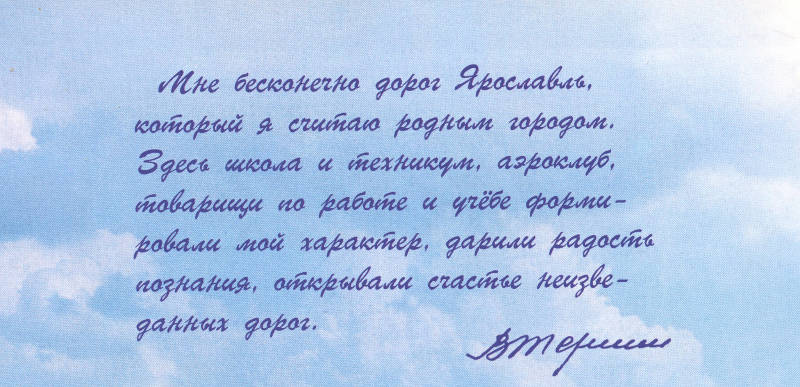 Мне бесконечно дорог Ярославль,
который я считаю родным городом.
Здесь школа и техникум, аэроклуб,
товарищи по работе и учёбе форми-
ровали мой характер, дарили радость
познания, открывали счастье неизве-
данных дорог.